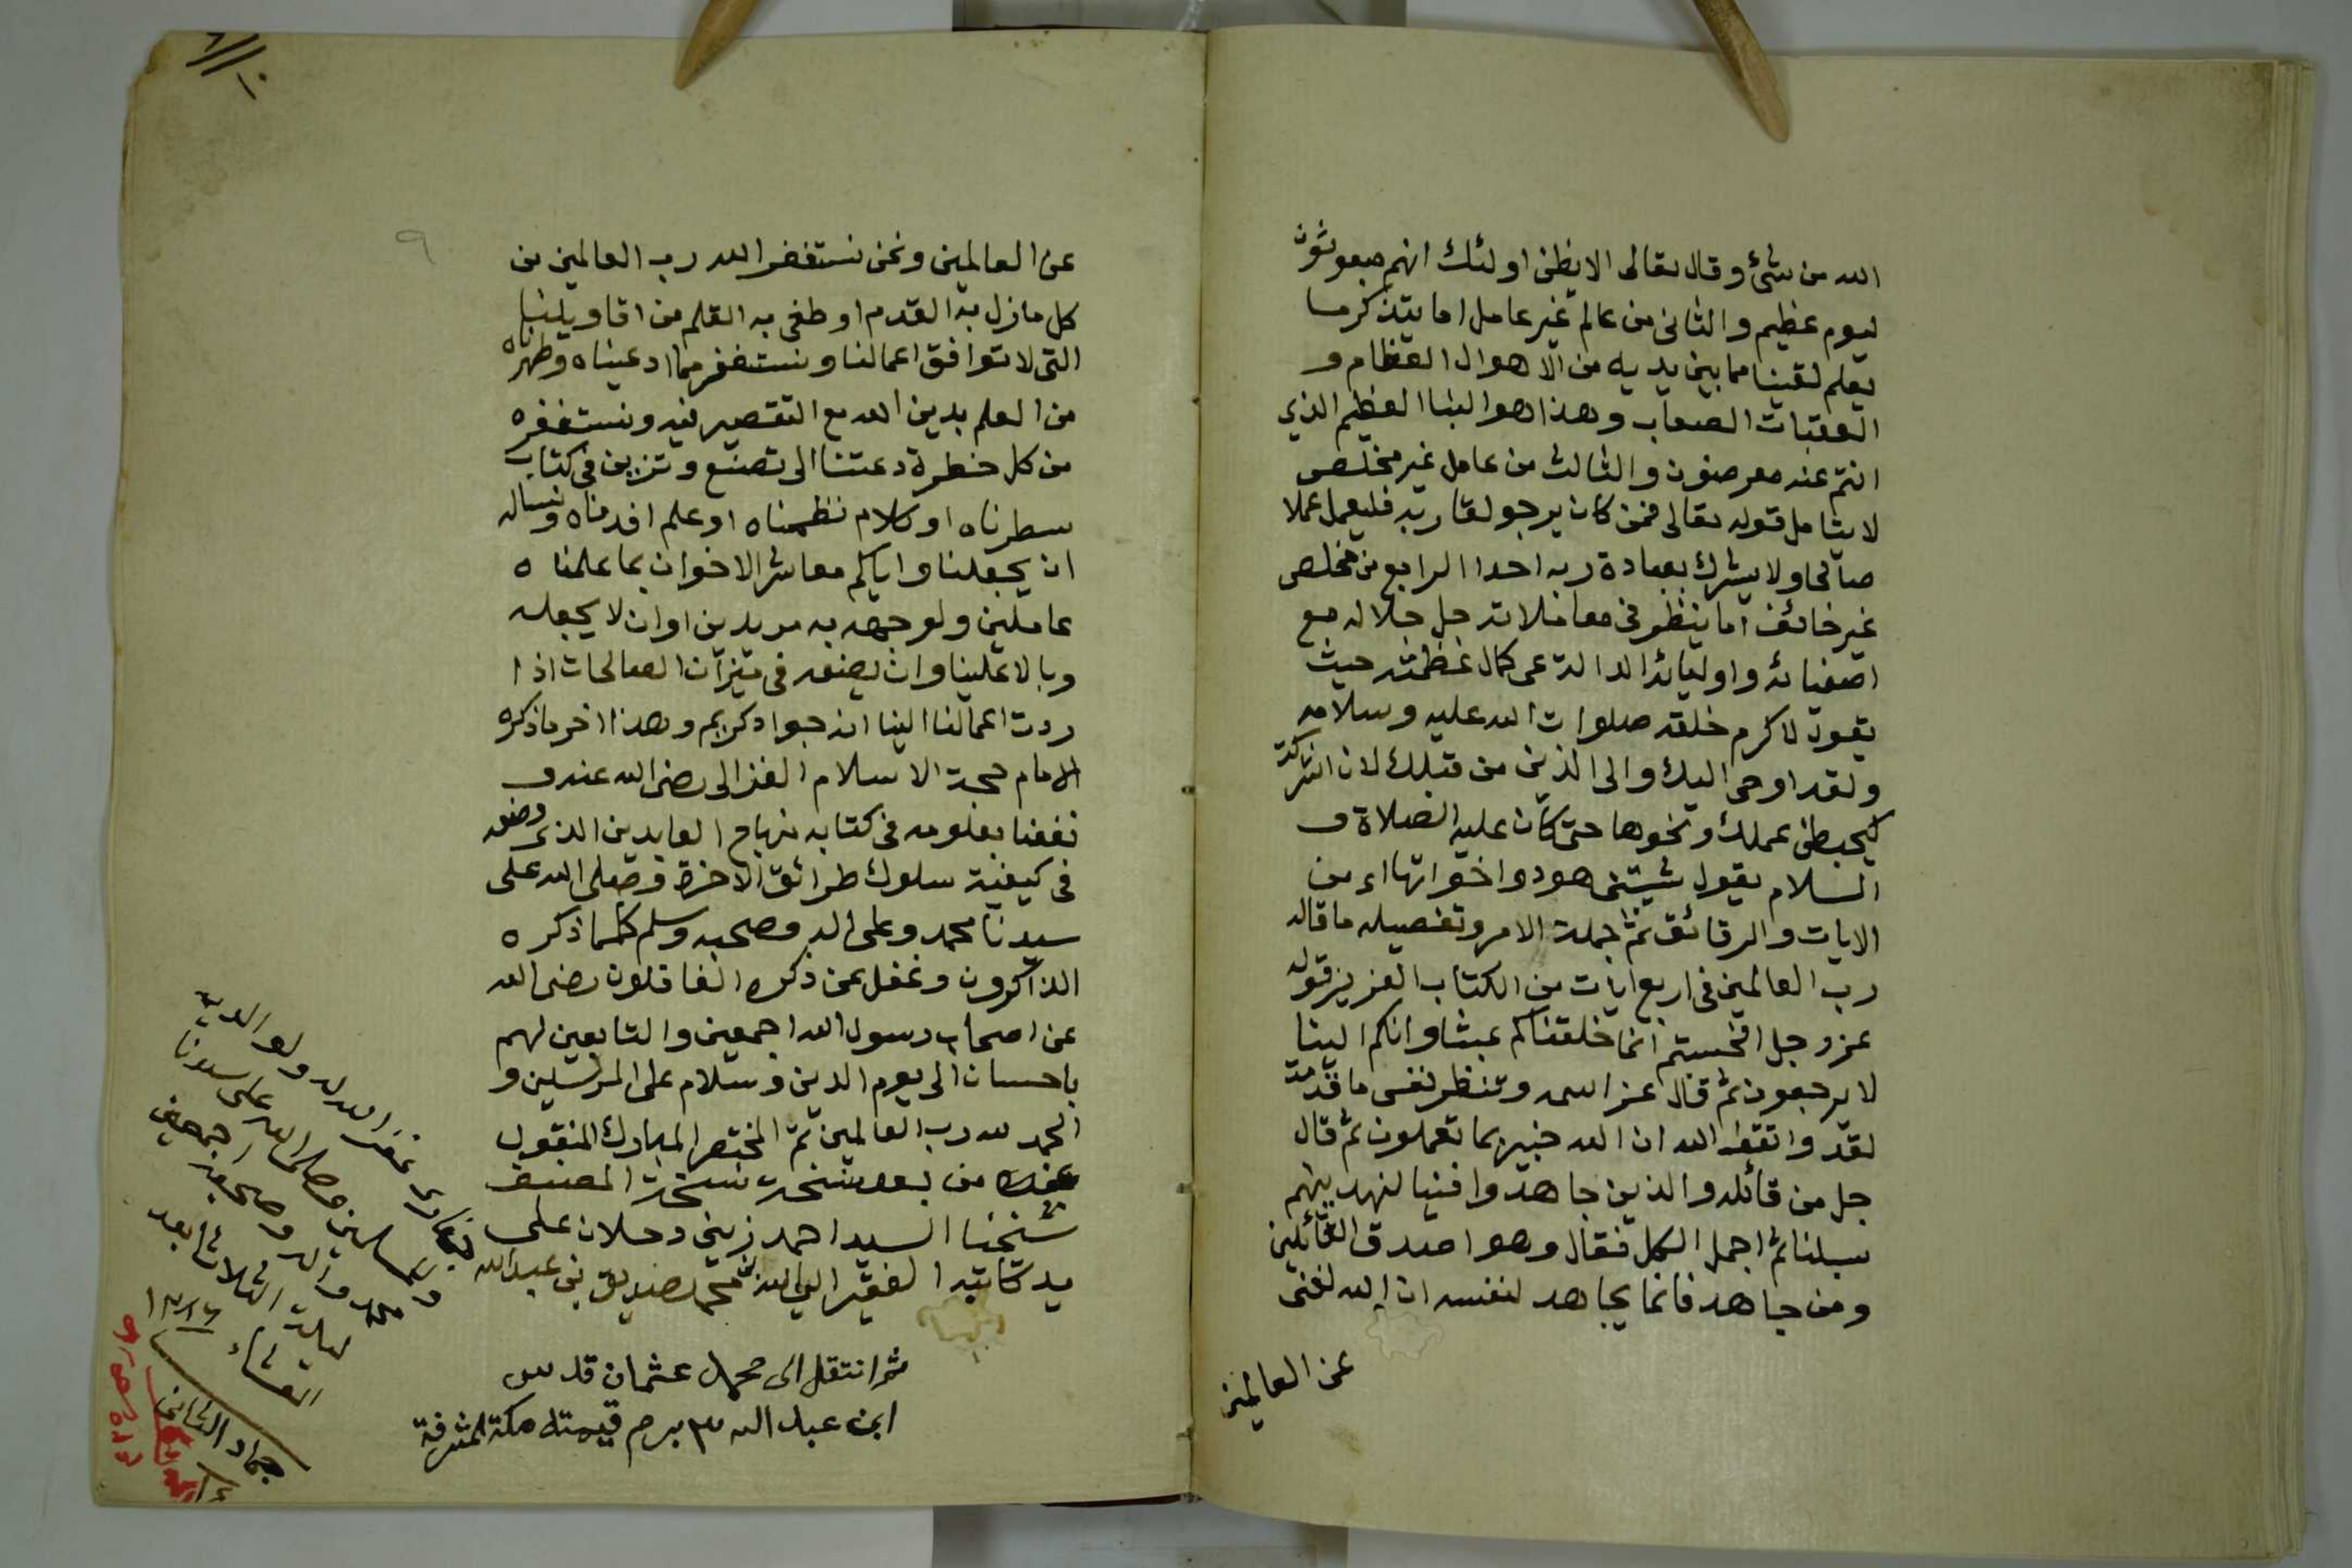 الله من شئ وقال تعالى الا يظن اولئك انهم مبعوثون
ليوم عظيم والثانى من عالم غير عامل اما يتذكر ما
يعلم يقينا مما بين يديه من الاهوال العظام و
العقبات الصعاب وهذا هو النبا العظيم الذى
انتم عنه معرضون والثالث من عامل غير مخلص
لا يتامل قوله تعالى فمن كان يرجو لقاء ربه فليعمل عملا
صالحا ولا يشرك بعبادة ربه احدا الرابع من مخلص
غير خائف اما ينظر فى معاملاته جل جلاله مع
اصفيائه واوليائه الدالة على كمال عظمته حيث
يقول لاكرم خلقه صلوات الله عليه وسلامه
ولقد اوحى اليك والى الذين من قبلك لان اشركت
ليحبطن عملك ونحوها حتى كان عليه الصلاة و
السلام يقول شيبتنى هود واخواتها اى من
الايات والرقائق ثم جملة الامر وتفصيله ما قاله
رب العالمين فى اربع ايات من الكتاب العزيز قوله
عز وجل افحسبتم انما خلقناكم عبثا وانكم الينا
لا ترجعون ثم قال عز اسمه وتنظر نفس ما قدمت
لغد واتقوا الله ان الله خبير بما تعملون ثم قال
جل من قائل والذين جاهدوا فينا لنهدينهم
سبلنا ثم اجمل الكل فقال وهو اصدق القائلين
ومن جاهد فانما يجاهد لنفسه ان الله لغنى
عن العالمين
٩
عن العالمين ونحن نستغفر الله رب العالمين من
كل ما زل به القدم او طغى به القلم من اقاويلنا
التى لا توافق اعمالنا ونستغفر مما ادعيناه وظهرناه
من العلم بدين الله مع التقصير فيه ونستغفره
من كل خطرة دعتنا الى تصنع وتزين فى كتاب
سطرناه او كلام نظمناه او علم افدناه ونساله
ان يجعلنا واياكم معاشر الاخوان بما علمناه
عاملين ولوجهه به مريدين وان لا يجعله
وبالا علينا وان يضعه فى ميزان الصالحات اذا
ردت اعمالنا الينا انه جواد كريم وهذا اخر ما ذكره
الامام حجة الاسلام الغزالى رضى الله عنه و
نفعنا بعلومه فى كتابه منهاج العابدين الذى وضعه
فى كيفية سلوك طرائق الاخرة وصلى الله على
سيدنا محمد وعلى اله وصحبه وسلم كلما ذكره
الذاكرون وغفل عن ذكره الغافلون رضى الله
عن اصحاب رسول الله اجمعين والتابعين لهم
باحسان الى يوم الدين وسلام على المرسلين و
الحمد لله رب العالمين تم المختصر المبارك المنقول
من نسخة المصنف
شيخنا السيد احمد زينى دحلان على
يد كاتبه الفقير الى الله محمد صديق بن عبد الله
غفر الله له ولوالديه
والمسلمين وصلى الله على سيدنا
محمد واله وصحبه اجمعين
ليلة الثلاثا بعد
العشاء
جماد الثانى
ثم انتقل الى محمد عثمان قدس
ابن عبد الله قيمته مكة المشرفة